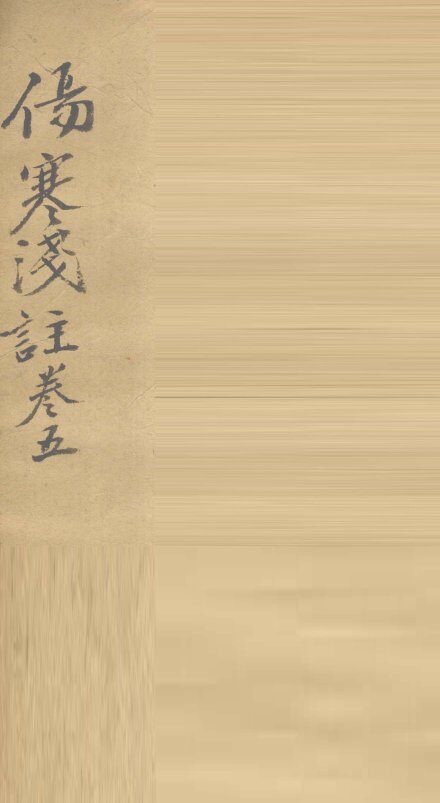 傷寒淺註卷五